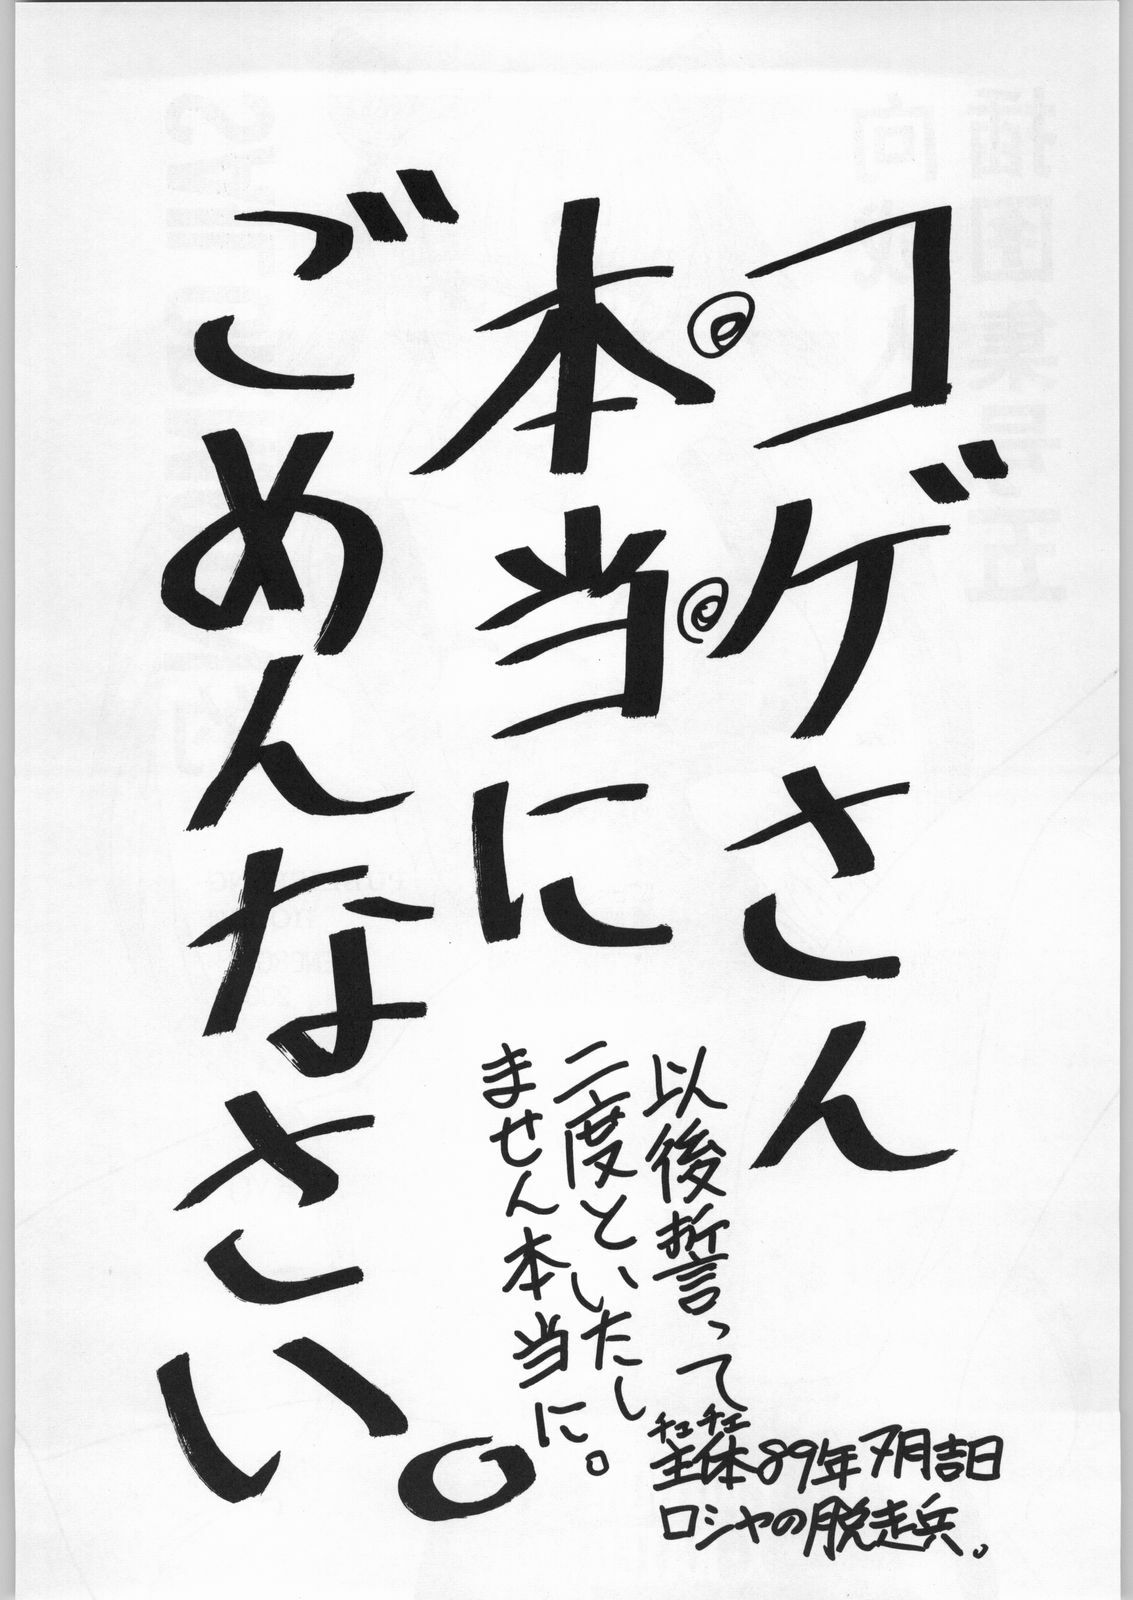 コゲさん
本当に
ごめんなさい。
以後誓って
二度といたし
ません本当に。
チェチェ
主体89年7月吉日
ロシヤの脱走兵。